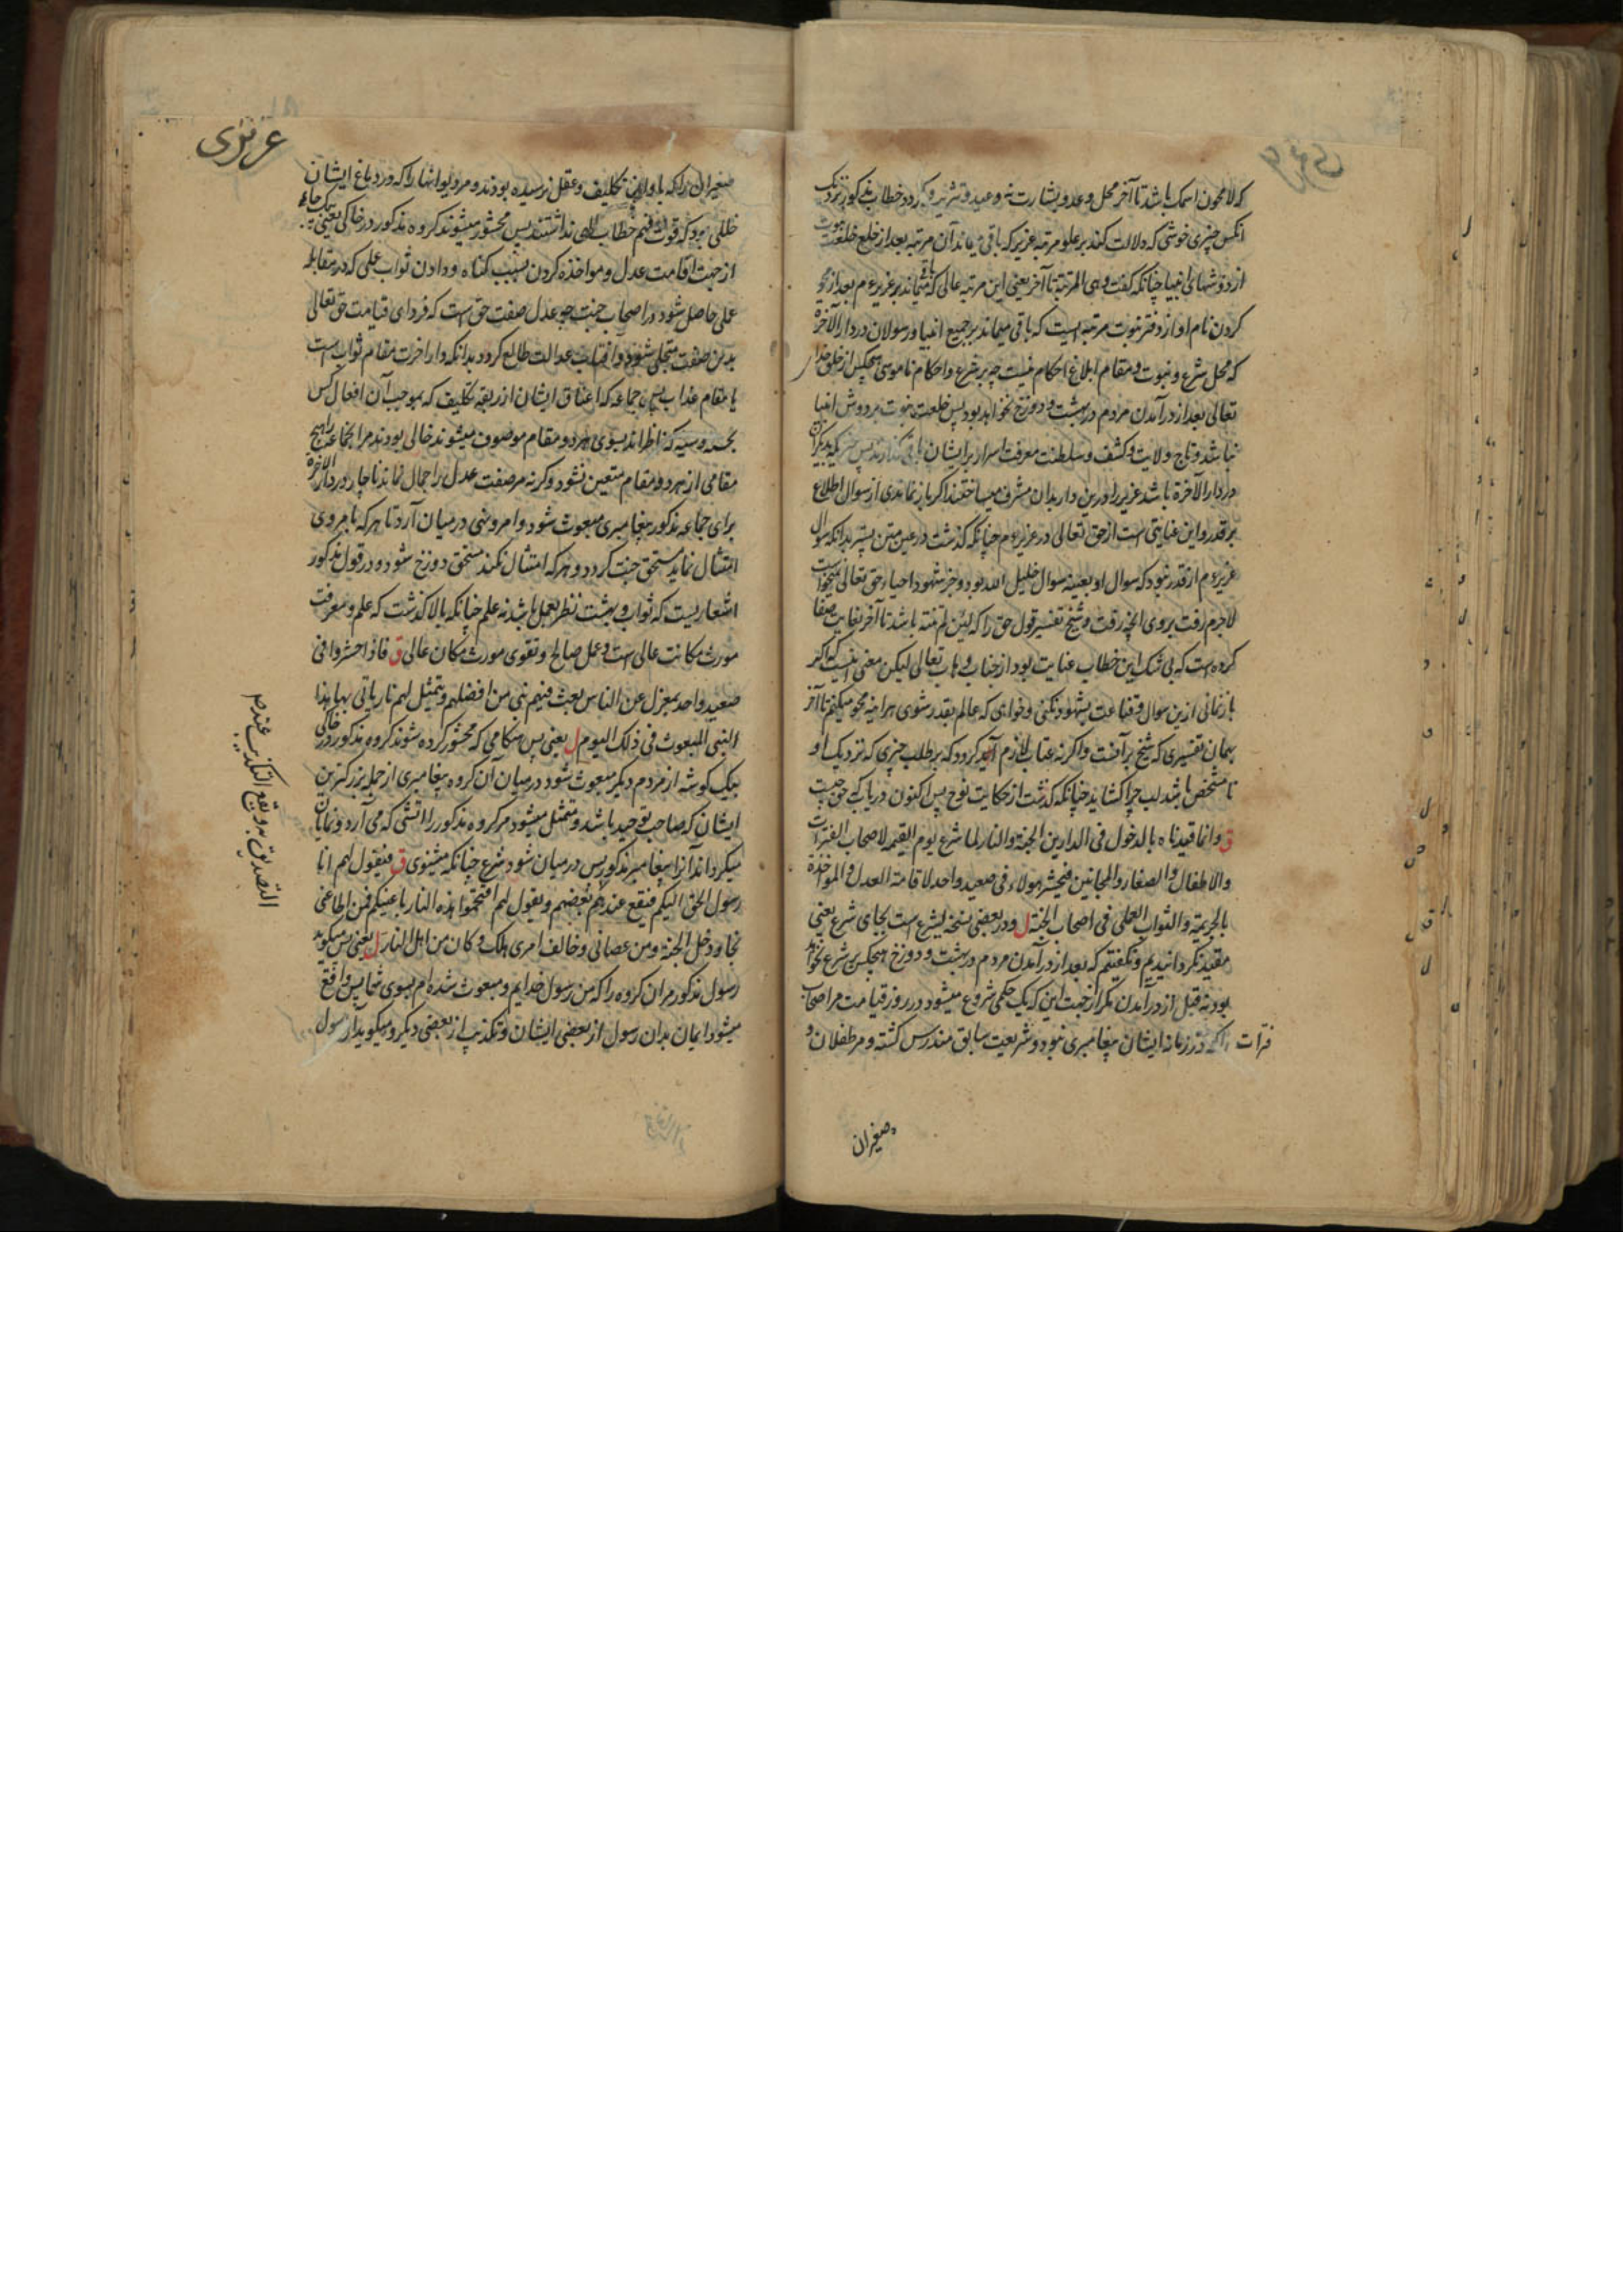 که لامحون اسمک باشد تا آخر محل وعد و بشارت نه وعید و خطاب مذکور نزدیک
انکس چیزی خوشی که دلالت کند بر علو مرتبه عزیر که باقی میماند آن مرتبه بعد از خلع خلعت نبوت
از دوشهای انبیا چنانکه گفت وهی المرتبة تا آخر یعنی این مرتبه عالی که باقی میماند بر عزیر عم بعد از محو
کردن نام او از دفتر نبوت مرتبه ایست که باقی میماند بر جمیع انبیا و رسولان در دار الآخرة
که محل شرع و نبوت و مقام ابلاغ احکام نیست چه بر شرع و احکام ناموسی هیچکس از خلق خدا
تعالی بعد از درآمدن مردم در بهشت و دوزخ نخواهد بود پس خلعت نبوت بر دوش انبیا
نباشد و تاج ولایت و کشف و سلطنت معرفت اسرار بر ایشان باقی گذارند پس
در دار الآخرة باشد عزیر را درین دار بدان مشرف میساختند اگر باز نماندی از سوال اطلاع
بر قدر و این عنایتی است از حق تعالی در عزیر عم چنانکه گذشت در عین متن پیشتر بدانکه سوال
عزیر عم از قدر نبود که سوال او بعینه سوال خلیل الله بود و جز شهود احیاء حق تعالی نمیخواست
لاجرم رفت بروی آنچه رفت و شیخ تفسیر قول حق را که لئن لم تنته باشد تا آخر بغایت صفا
کرده است که بی شک این خطاب عنایت بود از جناب وهاب تعالی لیکن معنی اینست که اگر
باز نمانی ازین سوال و قناعت بشهود نکنی و خواهی که عالم بقدر شوی هر آینه محو میکنم تا آخر
بهمان تفسیری که شیخ برآنست و اگر نه عتاب لازم آید گردد که بر طلب چیزی که نزدیک او
نامشخص باشد لب چرا کشاید چنانکه گذشت از حکایت نوح پس اکنون دریاب که حق چیست
ق وانما قیدناه بالدخول فی الدارین الجنة والنار لما شرع یوم القیمة لاصحاب الفترات
والاطفال والصغار والمجانین فیحشر هولاء فی صعید واحد لاقامة العدل والمواخذة
بالجریمة والثواب العملی فی اصحاب الجنة ل و در بعضی نسخه یشرع است بجای شرع یعنی
مقید نگردانیدیم و نگفتیم که بعد از درآمدن مردم در بهشت و دوزخ هیچکس بر شرع نخواهد
بود نه قبل از درآمدن مگر از جهت این که یک حکمی شروع میشود در روز قیامت مر اصحاب
فترات را که در زمانه ایشان پیغامبری نبود و شریعت سابق مندرس گشته و مر طفلان و
وصغیران
عزیزی
صغیران را که باوان تکلیف و عقل نرسیده بودند و مر دیوانها را که در دماغ ایشان
خللی بود که قوت فهم خطاب الهی نداشتند پس محشور میشوند گروه مذکور در خاکی یعنی یک جای
از جهت اقامت عدل و مواخذه کردن بسبب گناه و دادن ثواب عملی که در مقابله
عمل حاصل شود در اصحاب جنت چه عدل صفت حق است که فردای قیامت حق تعالی
بدین صفت متجلی شود و آفتاب عدالت طالع گردد بدانکه دار اخرت مقام ثواب است
یا مقام عذاب پس جماعه که اعناق ایشان از ربقه تکلیف که بموجب آن افعال کس
بحسنه و سیئه که ناظراند بسوی هر دو مقام موصوف میشوند خالی بودند مر آنجماعه را هیچ
مقامی از هر دو مقام متعین نشود وگرنه مر صفت عدل را مجال نماند ناچار در دار الآخرة
برای جماعه مذکور پیغامبری مبعوث شود و امر و نهی در میان آرد تا هر که بامر وی
امتثال نماید مستحق جنت گردد و هر که امتثال نکند مستحق دوزخ شود و در قول مذکور
اشعاریست که ثواب و بهشت نظر بعمل باشد نه علم چنانکه بالا گذشت که علم و معرفت
مورث مکانت عالی است و عمل صالح و تقوی مورث مکان عالی ق فاذا حشروا فی
صعید واحد بمعزل عن الناس بعث فیهم نبی من افضلهم و یتمثل لهم نار یاتی بها هذا
النبی المبعوث فی ذلک الیوم ل یعنی پس هنگامی که محشور کرده شوند گروه مذکور در خاکی
بیک گوشه از مردم دیگر مبعوث شود در میان آن گروه پیغامبری از جمله بزرگترین
ایشان که صاحب توحید باشد و متمثل میشود مر گروه مذکور را آتشی که می آرد و نمایان
میگرداند آنرا پیغامبر مذکور پس در میان شود شرع چنانکه میشنوی ق فیقول لهم انا
رسول الحق الیکم فیقع عندهم بعضهم و یقول لهم اقتحموا هذه النار بانفسکم فمن اطاعنی
نجا و دخل الجنة و من عصانی و خالف امری هلک و کان من اهل النار ل یعنی پس میگوید
رسول مذکور مر آن گروه را که من رسول خدایم و مبعوث شده ام بسوی شما پس واقع
میشود ایمان بدان رسول از بعضی ایشان و تکذیب از بعضی دیگر و میگوید آن رسول
التصدیق به ویقع التکذیب عند بعضهم